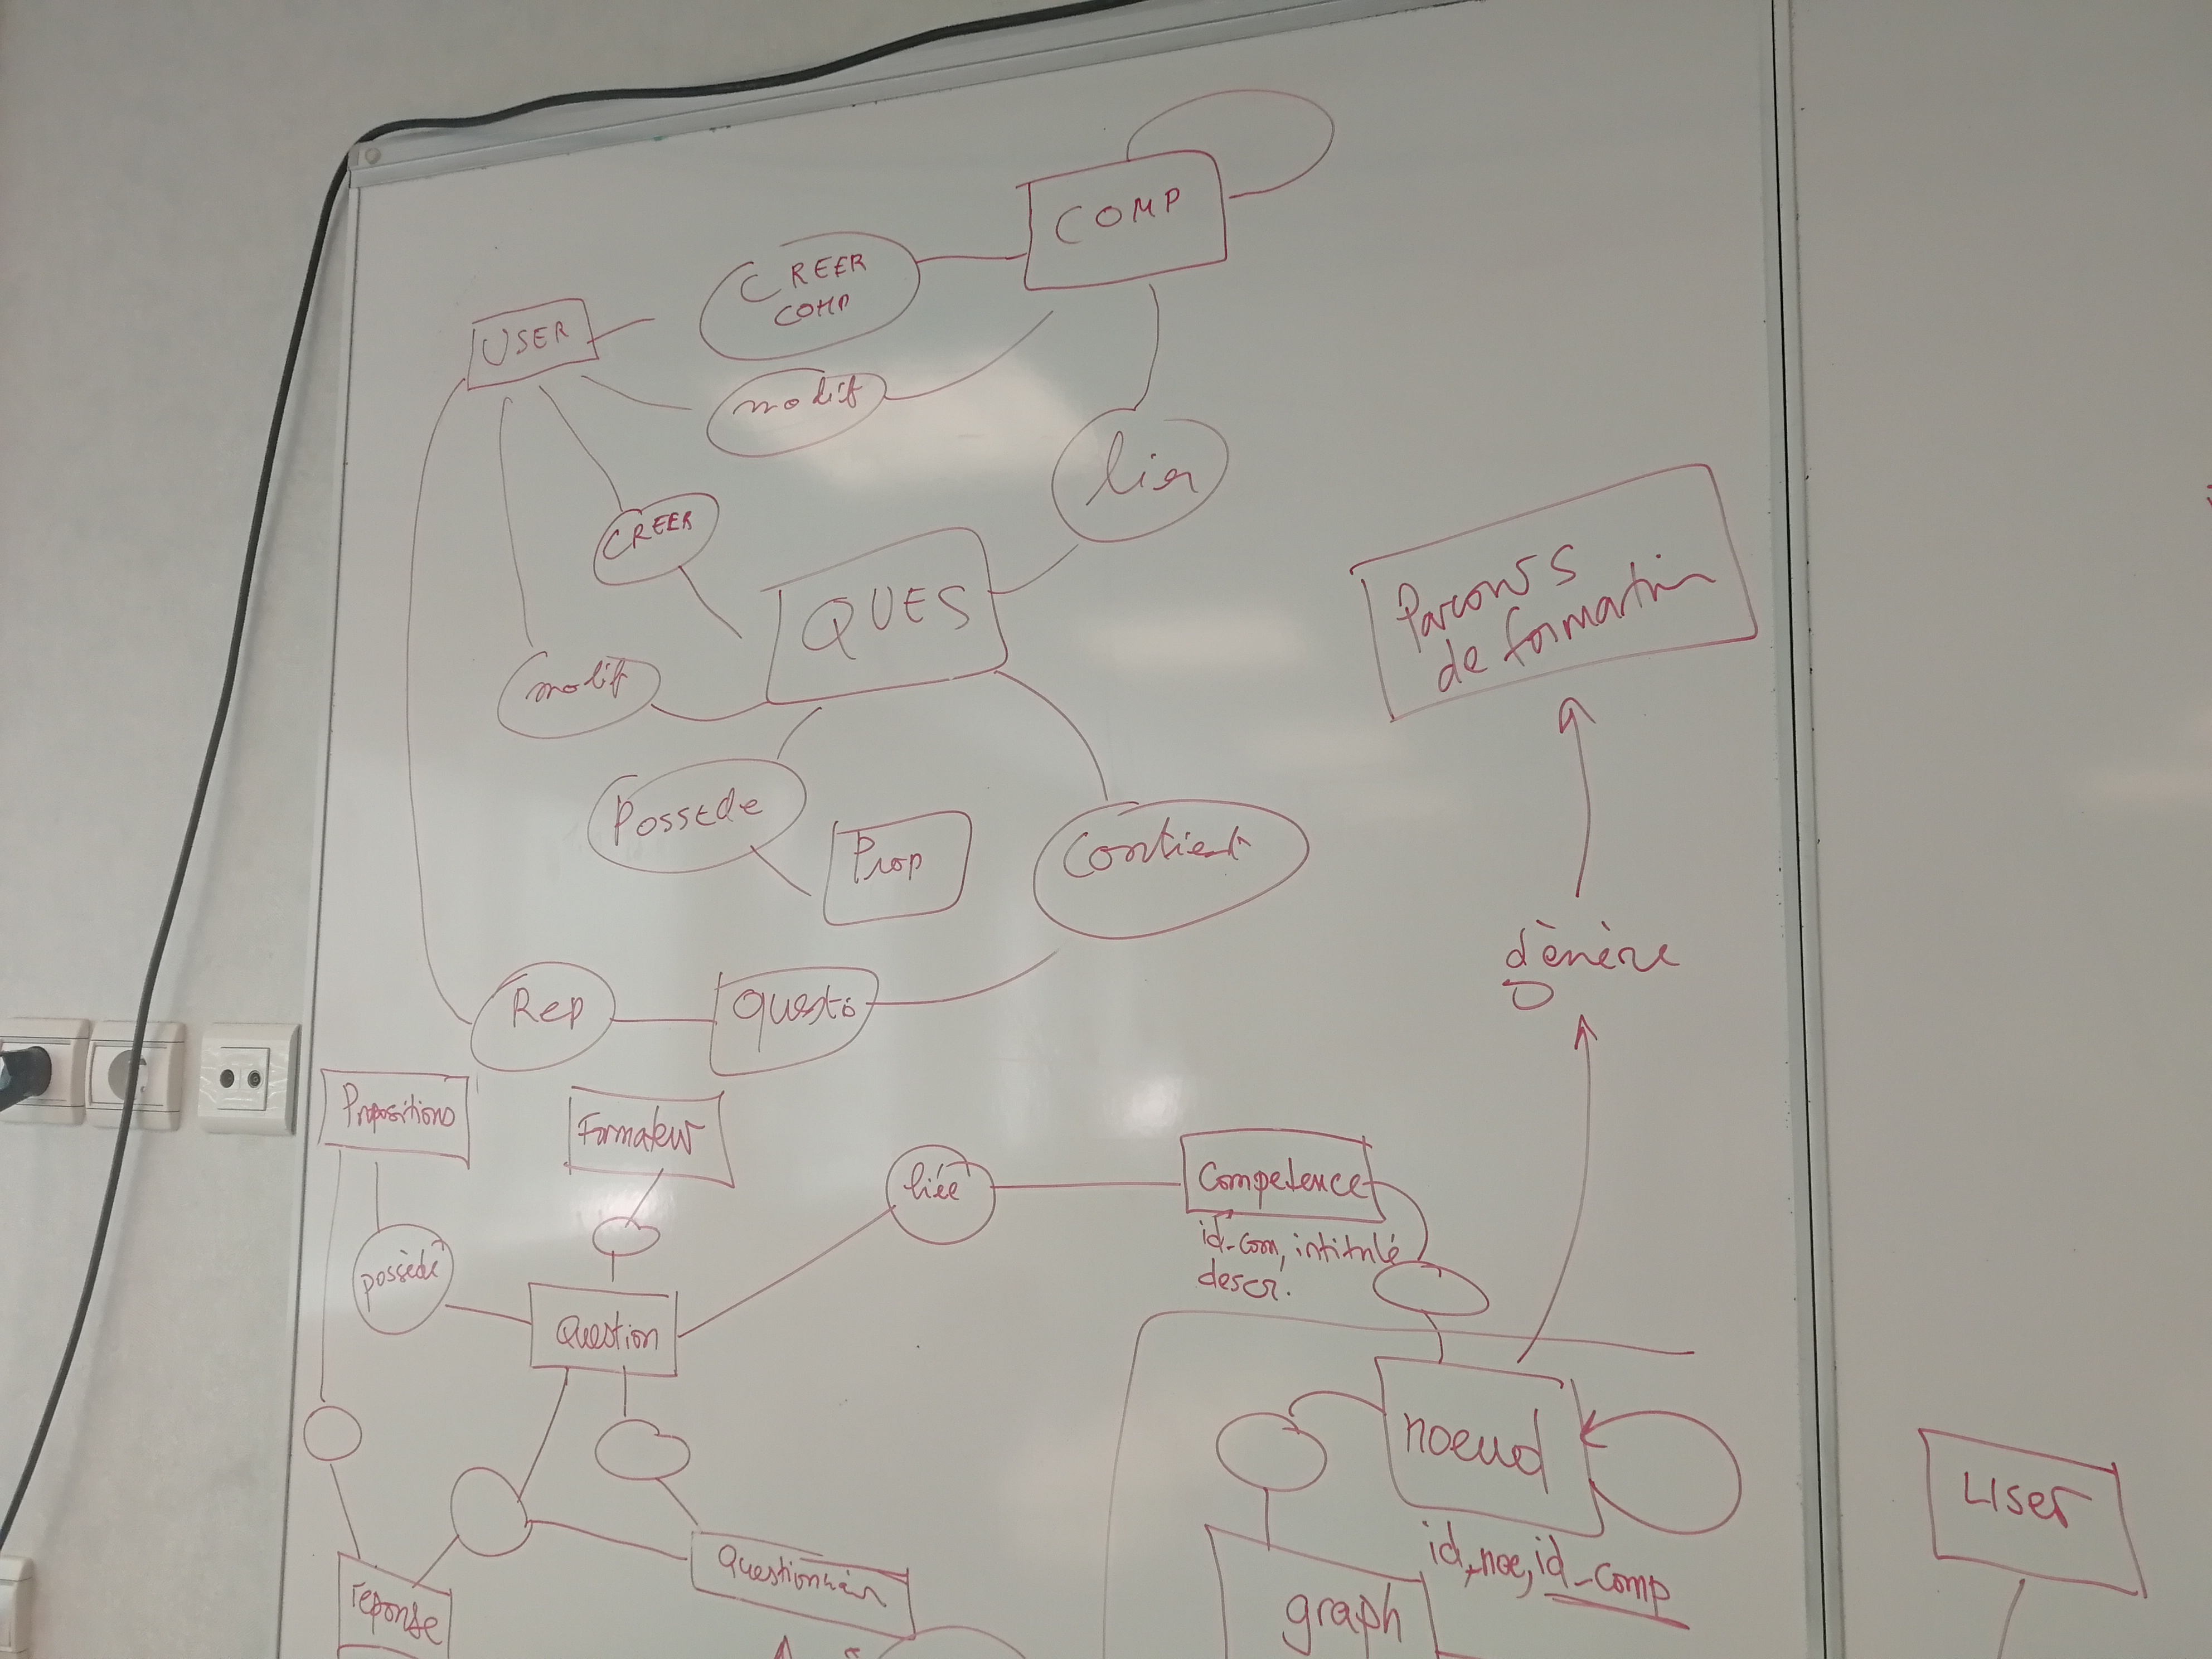 COMP
CREER
COMP
USER
modif
lier
CREER
QUES
Parcours
de formation
modif
Possede
Prop
Contient
génère
Rep
Questo
Propositions
Formateur
liée
Competence
id-com, intitulé
descr.
possède
Question
noeud
id_noe, id_comp
User
Questionnair
reponse
graph